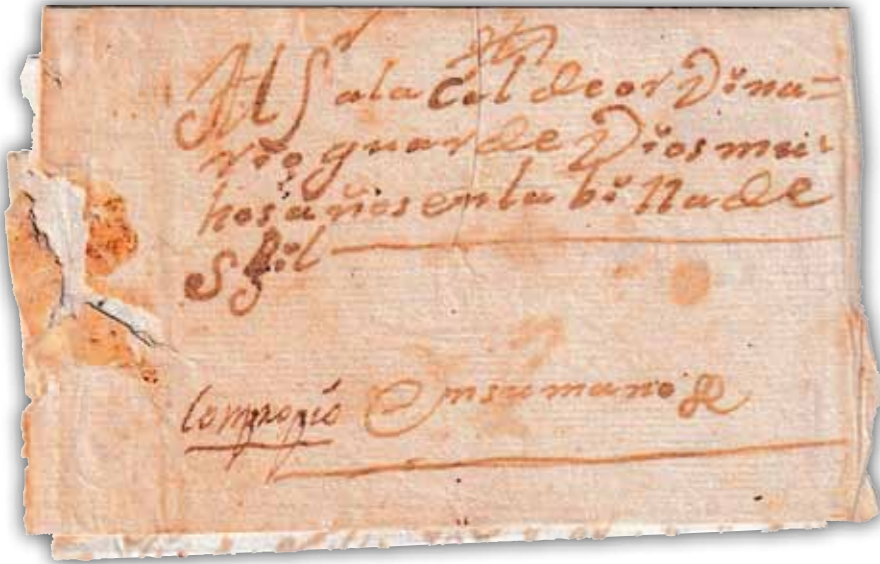 Al Sr alaCalde orDina=
rio guarde Dios mu-
hos años en la billa de
S Gil
Compropio En su mano